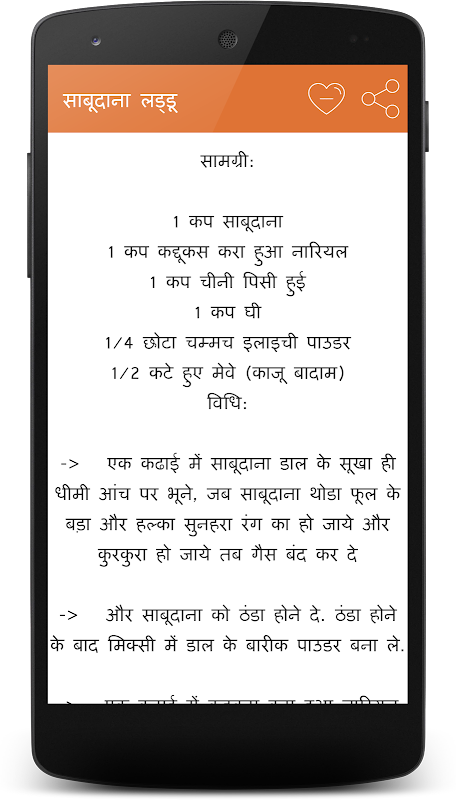 साबूदाना लड्डू
सामग्री:
1 कप साबूदाना
1 कप कद्दूकस करा हुआ नारियल
1 कप चीनी पिसी हुई
1 कप घी
1/4 छोटा चम्मच इलाइची पाउडर
1/2 कटे हुए मेवे (काजू बादाम)
विधि:
-> एक कढाई में साबूदाना डाल के सूखा ही
धीमी आंच पर भूने, जब साबूदाना थोडा फूल के
बड़ा और हल्का सुनहरा रंग का हो जाये और
कुरकुरा हो जाये तब गैस बंद कर दे
-> और साबूदाना को ठंडा होने दे. ठंडा होने
के बाद मिक्सी में डाल के बारीक पाउडर बना ले.